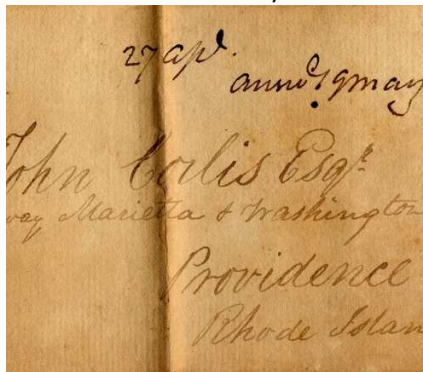 27 apl.
answd 19 may
John Corlis Esqr.
way Marietta & Washington
Providence
Rhode Islan